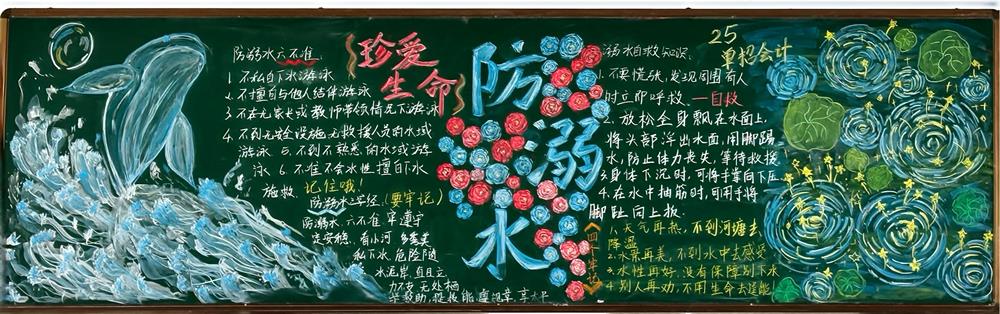 防溺水六不准
1. 不私自下水游泳
2. 不擅自与他人结伴游泳
3. 不在无家长或教师带领情况下游泳
4. 不到无安全设施无救援人员的水域
游泳 5. 不到不熟悉的水域游
泳 6. 不准不会水性擅自下水
施救
记住哦!
防溺水三字经 (要牢记)
防溺水 六不准 牢遵守
看小河 多美美
私下水 危险随
力不支 无处栖
珍爱
生命
防
溺
水
溺水自救知识:
1. 不要慌张,发现周围有人
时立即呼救.—自救
2. 放松全身飘在水面上.
将头部浮出水面,用脚踢
水,防止体力丧失,等待救援
3. 身体下沉时,可将手掌向下压
4. 在水中抽筋时,可用手将
脚趾向上扳.
1. 天气再热,不到河塘去
降温
2. 水景再美,不到水中去感受
3. 水性再好,没有保障别下水
4. 别人再劝,不用生命去逞能!
25
单招会计